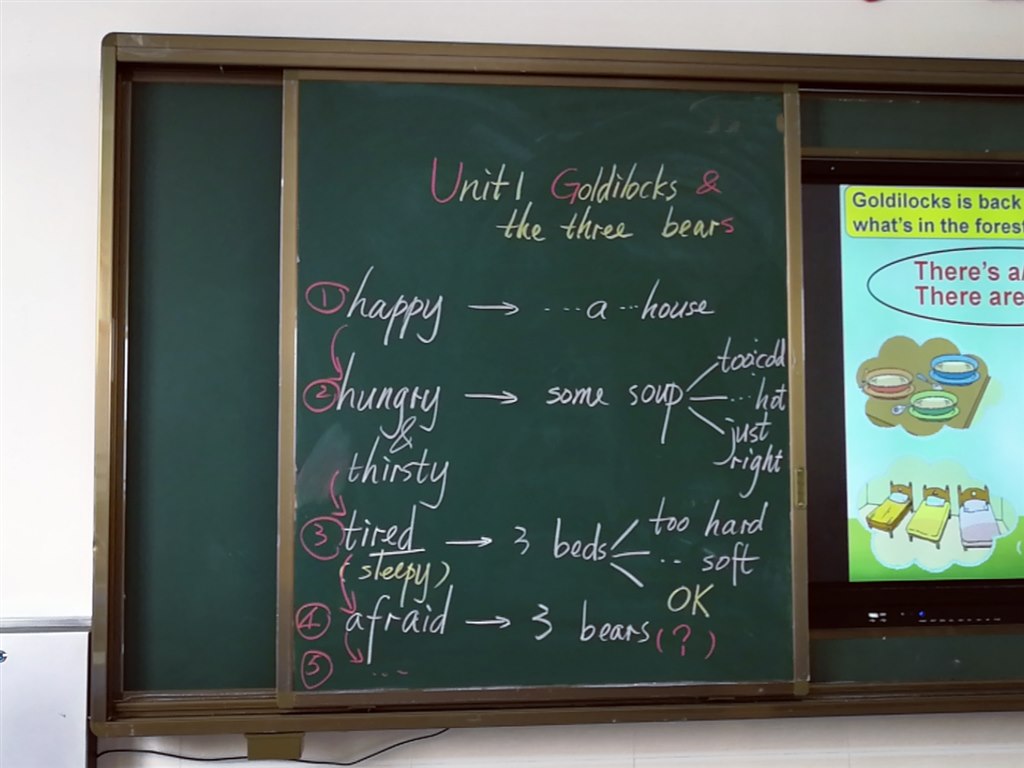 Unit 1 Goldilocks &
the three bears
① happy → ... a ... house
② hungry → some soup
too cold
... hot
just
right
&
thirsty
③ tired → 3 beds
too hard
... soft
OK
(sleepy)
④ afraid → 3 bears (?)
⑤ ...
Goldilocks is back
what's in the forest
There's a
There are